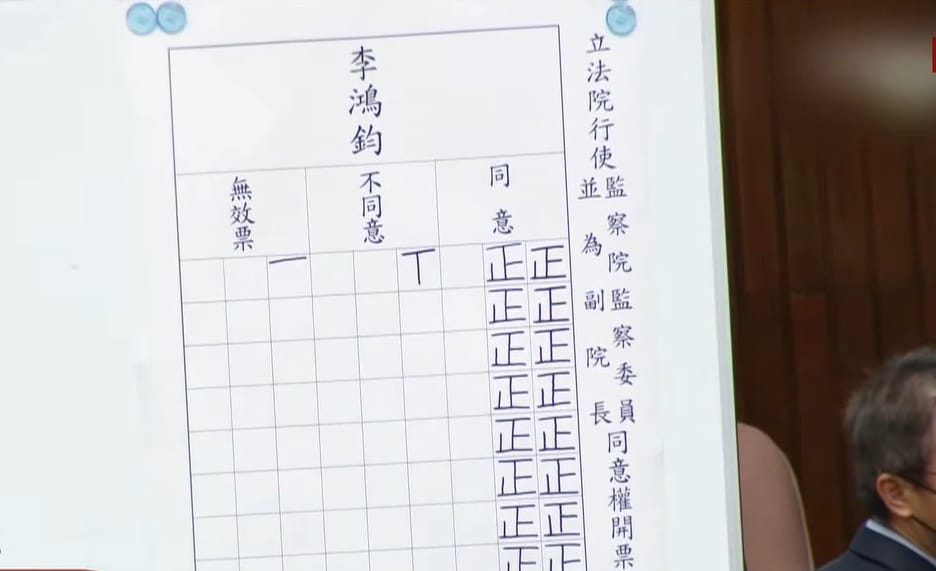 立法院行使
監察院監察委員
並為副院長
同意權開票
李鴻鈞
同意
不同意
無效票
正正正正正正正正
正正正正正正正正
丅
一